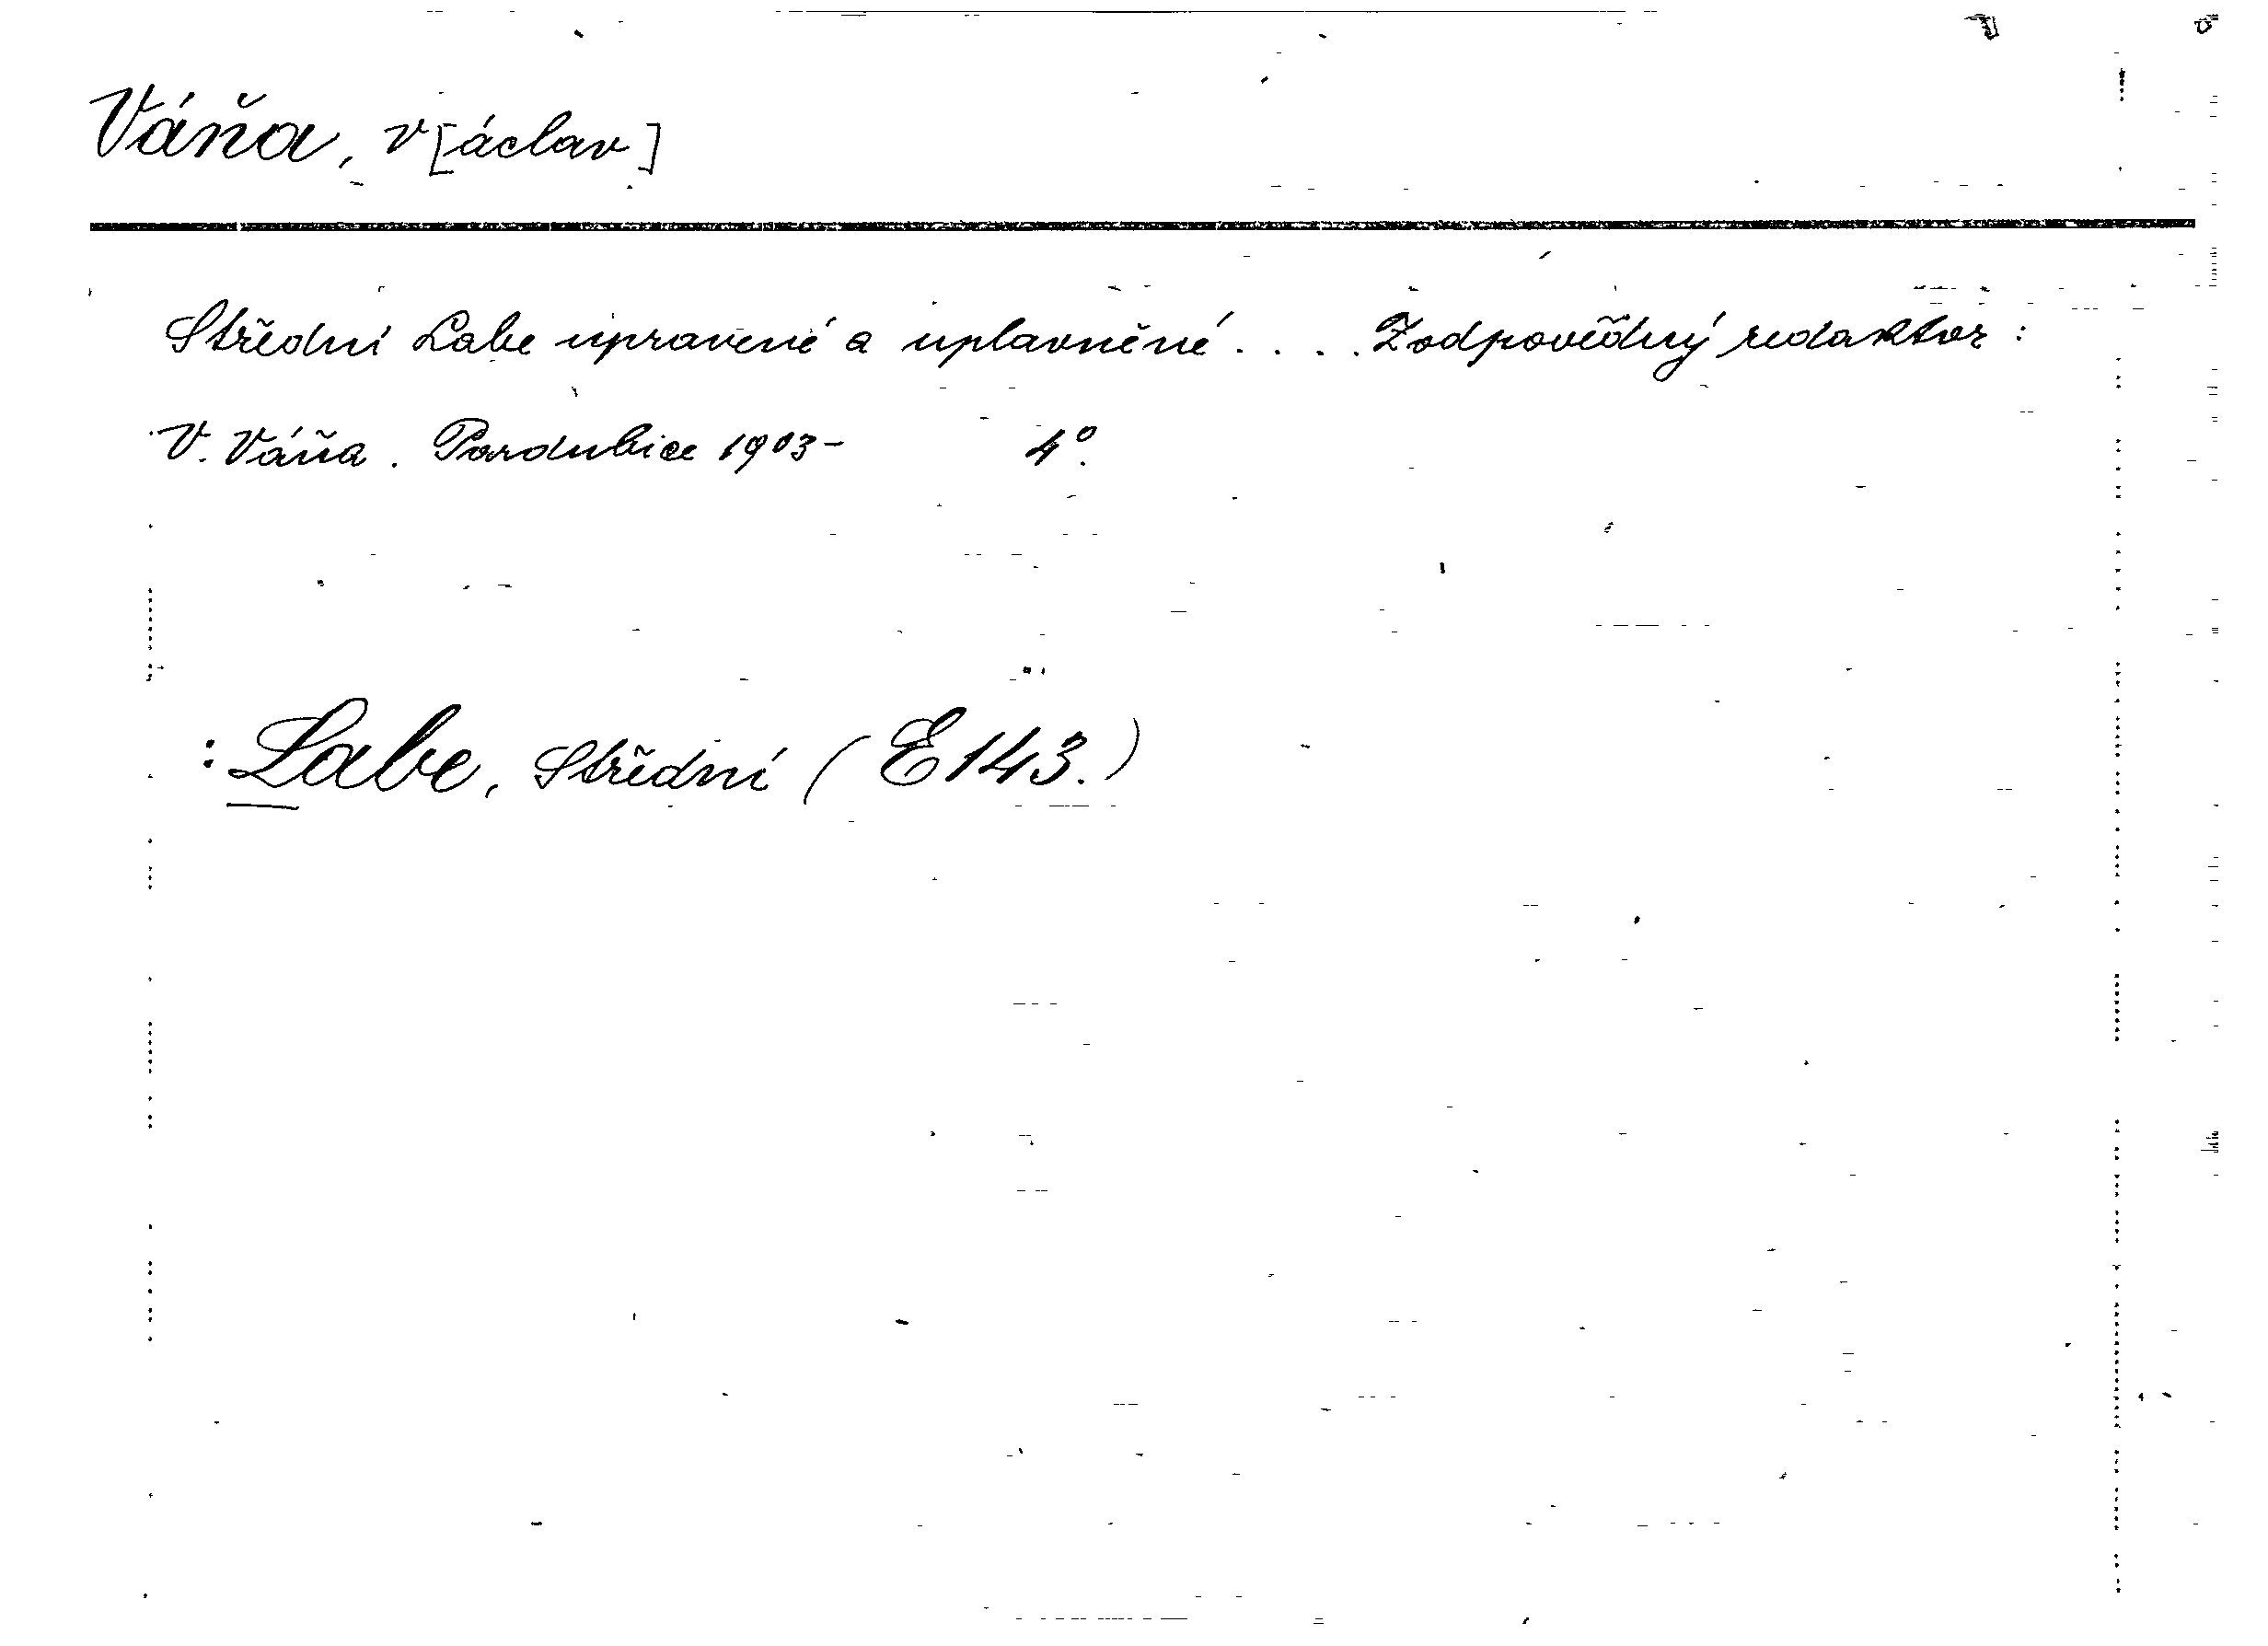 Váňa, V[áclav]
Střední Labe upravené a uplavněné.... Zodpovědný redaktor:
V. Váňa. Pardubice 1903- 4°.
: Labe, Střední (E 143.)